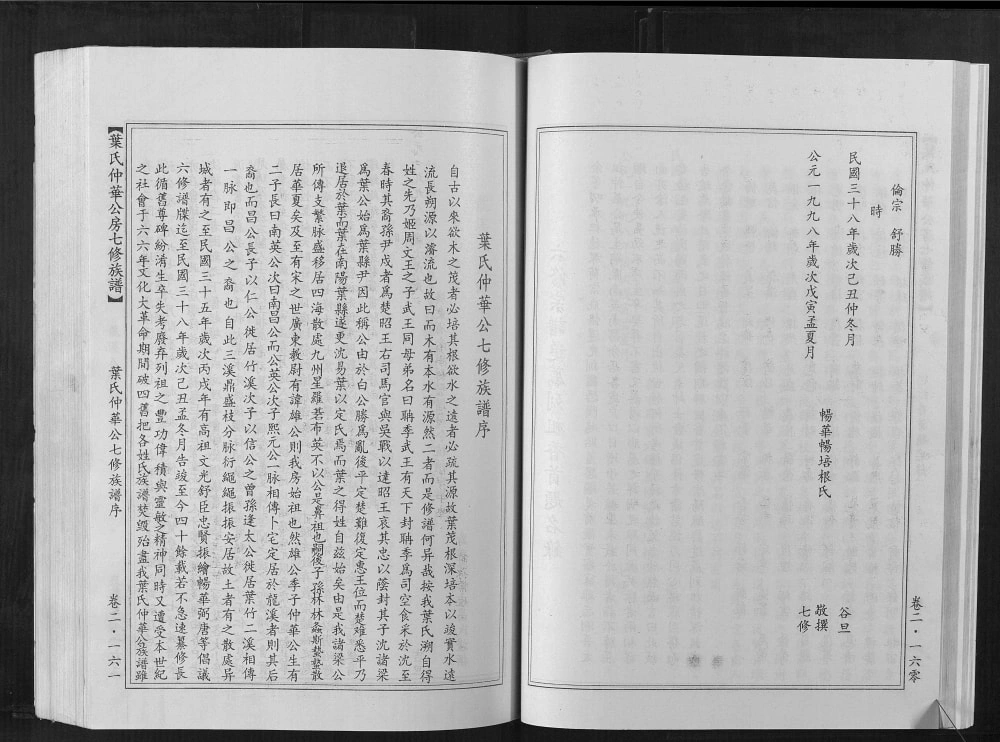 倫宗 舒勝
時
民國三十八年歲次己丑仲冬月
公元一九九八年歲次戊寅孟夏月
暢華暢培根氏
谷旦
敬撰
七修
卷二·一六零
葉氏仲華公七修族譜序
自古以來欲木之茂者必培其根欲水之遠者必疏其源故葉茂根深培本以竣實水遠
流長朔源以濬流也故曰而木有本水有源然二者而是修譜何异哉按我葉氏溯自得
姓之先乃姬周文王之子武王同母弟名曰聃季武王有天下封聃季爲司空食采於沈至
春時其裔孫尹戍者爲楚昭王右司馬官與吳戰以達昭王哀其忠以蔭封其子沈諸梁
爲葉公始爲葉縣尹因此稱公由於白公勝爲亂後平定楚難復定惠王位而楚难悉平乃
退居於葉而葉在南陽葉縣遂更沈易葉以定氏焉而葉之得姓自兹始矣由是我諸梁公
所傳支繁脉盛移居四海散處九州星羅碁布英不以公是鼻祖也嗣後子孫林林螽斯蟄蟄散
居華夏矣及至有宋之世廣東教尉有諱雄公則我房始祖也然雄公季子仲華公生有
二子長曰南英公次曰南昌公而公英公次子熙元公一脉相傳卜宅定居於龍溪者則其后
裔也而昌公長子以仁公徙居竹溪次子以信公之曾孫逢太公徙居葉竹二溪相傳
一脉即昌公之裔也自此三溪鼎盛枝分脉衍繩繩振振安居故土者有之散處异
城者有之至民國三十五年歲次丙戌年有高祖文光舒臣忠賢振繪暢華弼唐等倡議
六修譜牒迄至民國三十八年歲次己丑孟冬月告竣至今四十餘載若不急速纂修長
此循舊尊碑紛淆生卒失考廢弃列祖之豐功偉積與靈敏之精神同時又遭受本世紀
之社會于六六年文化大革命期間破四舊把各姓氏族譜焚毁殆盡我葉氏仲華公族譜雖
【葉氏仲華公房七修族譜】
葉氏仲華公七修族譜序
卷二·一六一